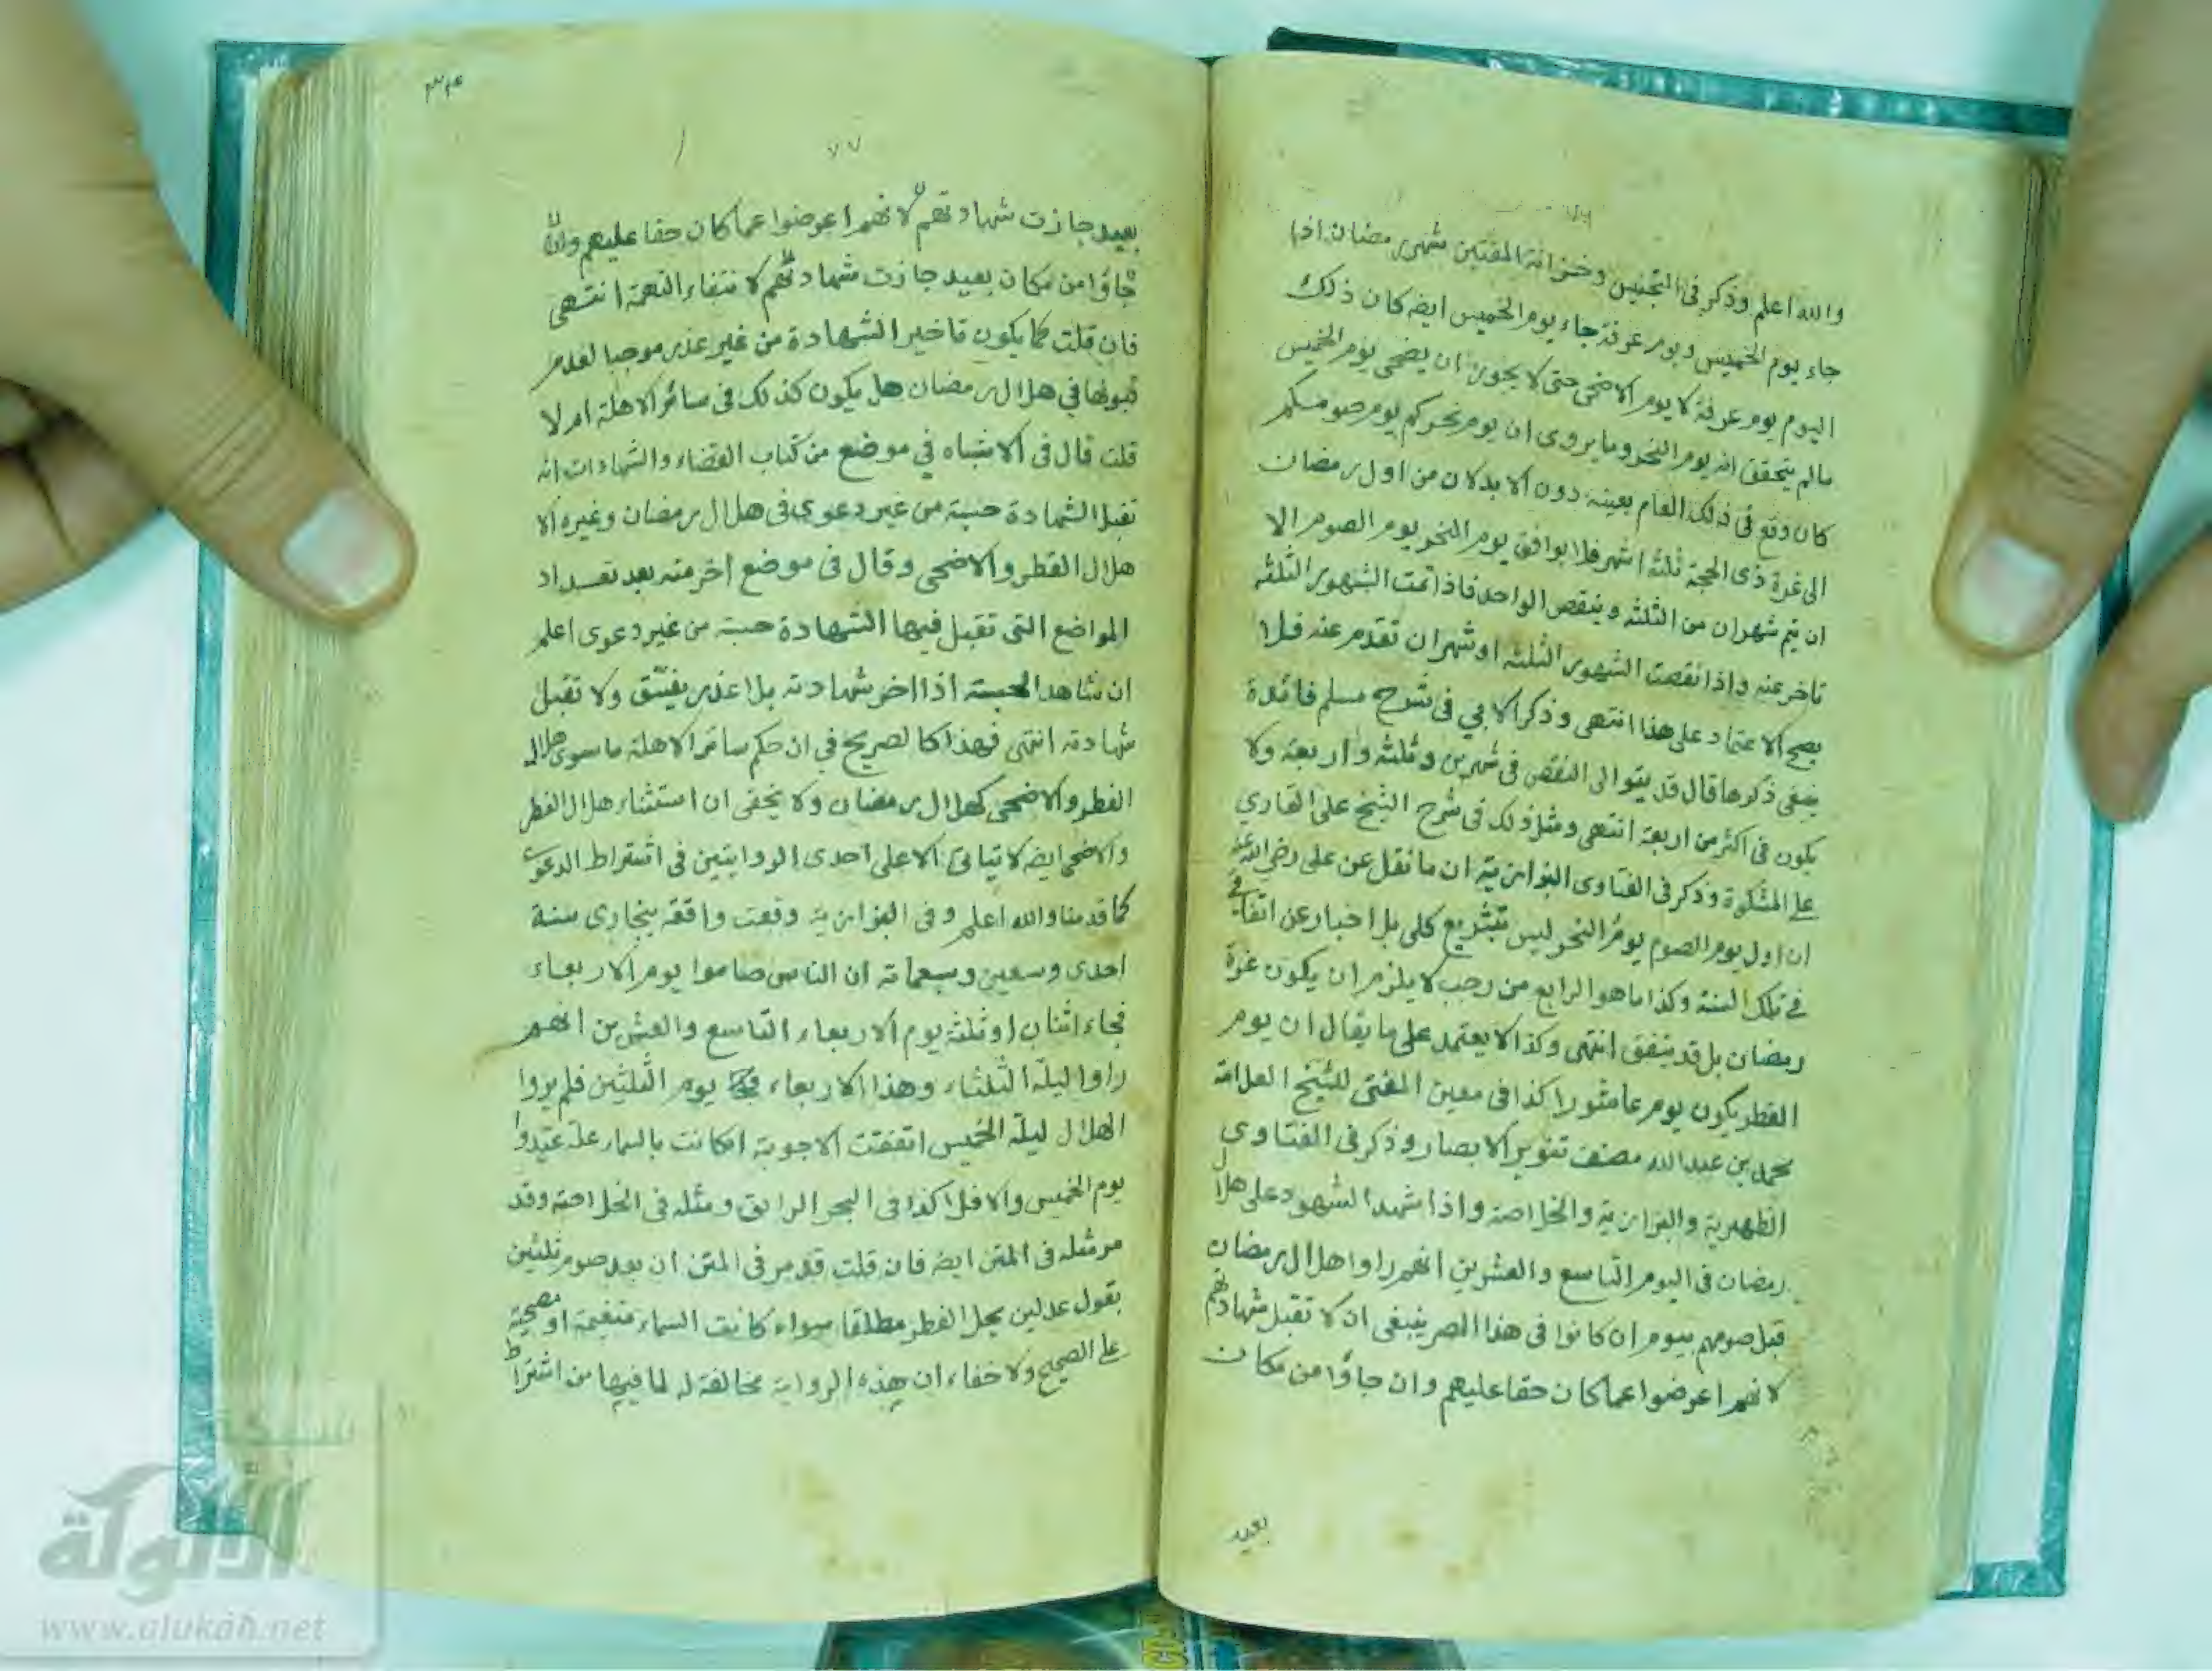 والله اعلم وذكر في التجنيس وخزانة المفتين شهر رمضان اذا
جاء يوم الخميس ويوم عرفة جاء يوم الخميس ايضا كان ذلك
اليوم يوم عرفة لا يوم الاضحى حتى لا يجوز ان يضحى يوم الخميس
مالم يتحقق انه يوم النحر وما يروى ان يوم نحركم يوم صومكم
كان وقع في ذلك العام بعينه دون الابد لان من اول رمضان
الى غرة ذى الحجة ثلثة اشهر فلا يوافق يوم النحر يوم الصوم الا
ان يتم شهران من الثلثه وينقص الواحد فاذا تمت الشهور الثلثه
تاخر عنه واذا نقصت الشهور الثلثه او شهران تقدم عنه فلا
يصح الاعتماد على هذا انتهى وذكر الابي في شرح مسلم فائدة
ينبغى ذكرها قال قد يتوالى النقص في شهرين وثلثه واربعة ولا
يكون في اكثر من اربعة انتهى ومثل ذلك في شرح الشيخ على القاري
على المشكوة وذكر في الفتاوى البزازية ان ما نقل عن على رضى الله عنه
ان اول يوم الصوم يوم النحر ليس بتشريع كلى بل اخبار عن اتفاقي
في تلك السنة وكذا ما هو الرابع من رجب لا يلزم ان يكون غرة
رمضان بل قد يتفق انتهى وكذا لا يعتمد على ما يقال ان يوم
الفطر يكون يوم عاشورا كذا في معين المفتى للشيخ العلامة
محمد بن عبد الله مصنف تنوير الابصار وذكر في الفتاوى
الظهيرية والبزازية والخلاصة واذا شهد الشهود على هلال
رمضان في اليوم التاسع والعشرين انهم راوا هلال رمضان
قبل صومهم بيوم ان كانوا في هذا المصر ينبغى ان لا تقبل شهادتهم
لانهم اعرضوا عما كان حقا عليهم وان جاؤا من مكان
بعيد
٧٧
بعيد جازت شهادتهم لانهم اعرضوا عما كان حقا عليهم وان
جاؤا من مكان بعيد جازت شهادتهم لانتفاء التهمة انتهى
فان قلت كما يكون تاخير الشهادة من غير عذر موجبا لعدم
قبولها في هلال رمضان هل يكون كذلك في سائر الاهلة ام لا
قلت قال في الاشباه في موضع من كتاب القضاء والشهادات انه
تقبل الشهادة حسبة من غير دعوى في هلال رمضان وغيره الا
هلال الفطر والاضحى وقال في موضع اخر منه بعد تعداد
المواضع التى تقبل فيها الشهادة حسبة من غير دعوى اعلم
ان شاهد الحسبة اذا اخر شهادته بلا عذر يفسق ولا تقبل
شهادته انتهى فهذا كالصريح في ان حكم سائر الاهلة ما سوى هلال
الفطر والاضحى كهلال رمضان ولا يخفى ان استثناء هلال الفطر
والاضحى ايضا لا يتاتى الا على احدى الروايتين في اشتراط الدعوى
كما قدمنا والله اعلم وفى البزازية وقعت واقعة ببخارى سنة
احدى وسبعين وسبعمائة ان الناس صاموا يوم الاربعاء
فجاء اثنان او ثلثة يوم الاربعاء التاسع والعشرين انهم
راوا ليلة الثلثاء وهذا الاربعاء يوم الثلثين فلم يروا
الهلال ليلة الخميس اتفقت الاجوبة ان كانت بالسماء علة عيدوا
يوم الخميس والا فلا كذا في البحر الرايق ومثله في الخلاصة وقد
مر مثله في المتن ايضا فان قلت قد مر في المتن ان بعد صوم ثلثين
بقول عدلين يحل الفطر مطلقا سواء كانت السماء متغيمة او مصحية
على الصحيح ولا خفاء ان هذه الرواية مخالفة له لما فيها من اشتراط
الألوكة
www.alukah.net